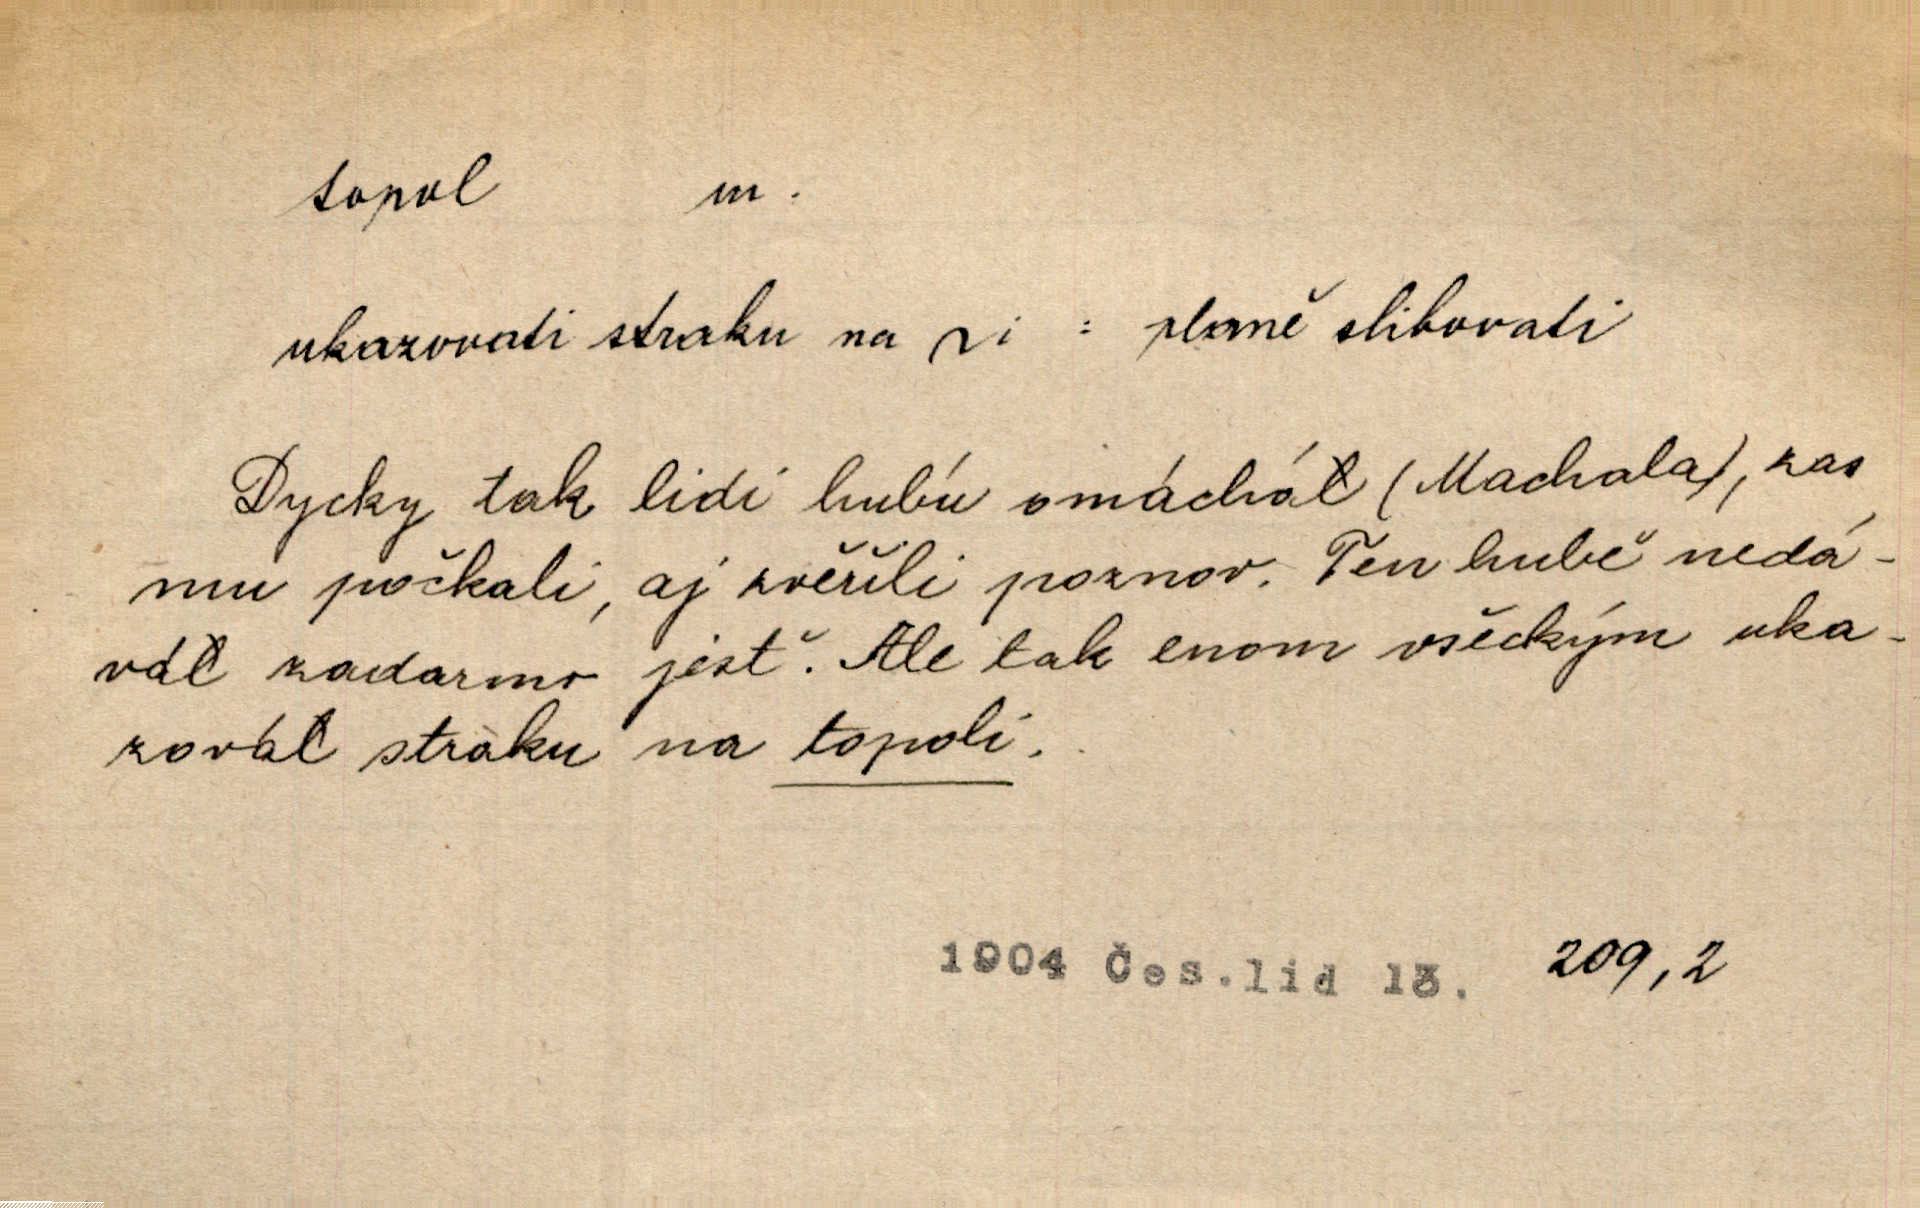 topol m.
ukazovati straku na ~i : planě slibovati
Dycky tak lidi hubú omácháł (Machala), zas
mu počkali, aj zvěřili poznov. Ten hubě nedá-
váł zadarmo jesť. Ale tak enom všeckým uka-
zováł straku na topoli.
1904 Čes.lid 13. 209,2